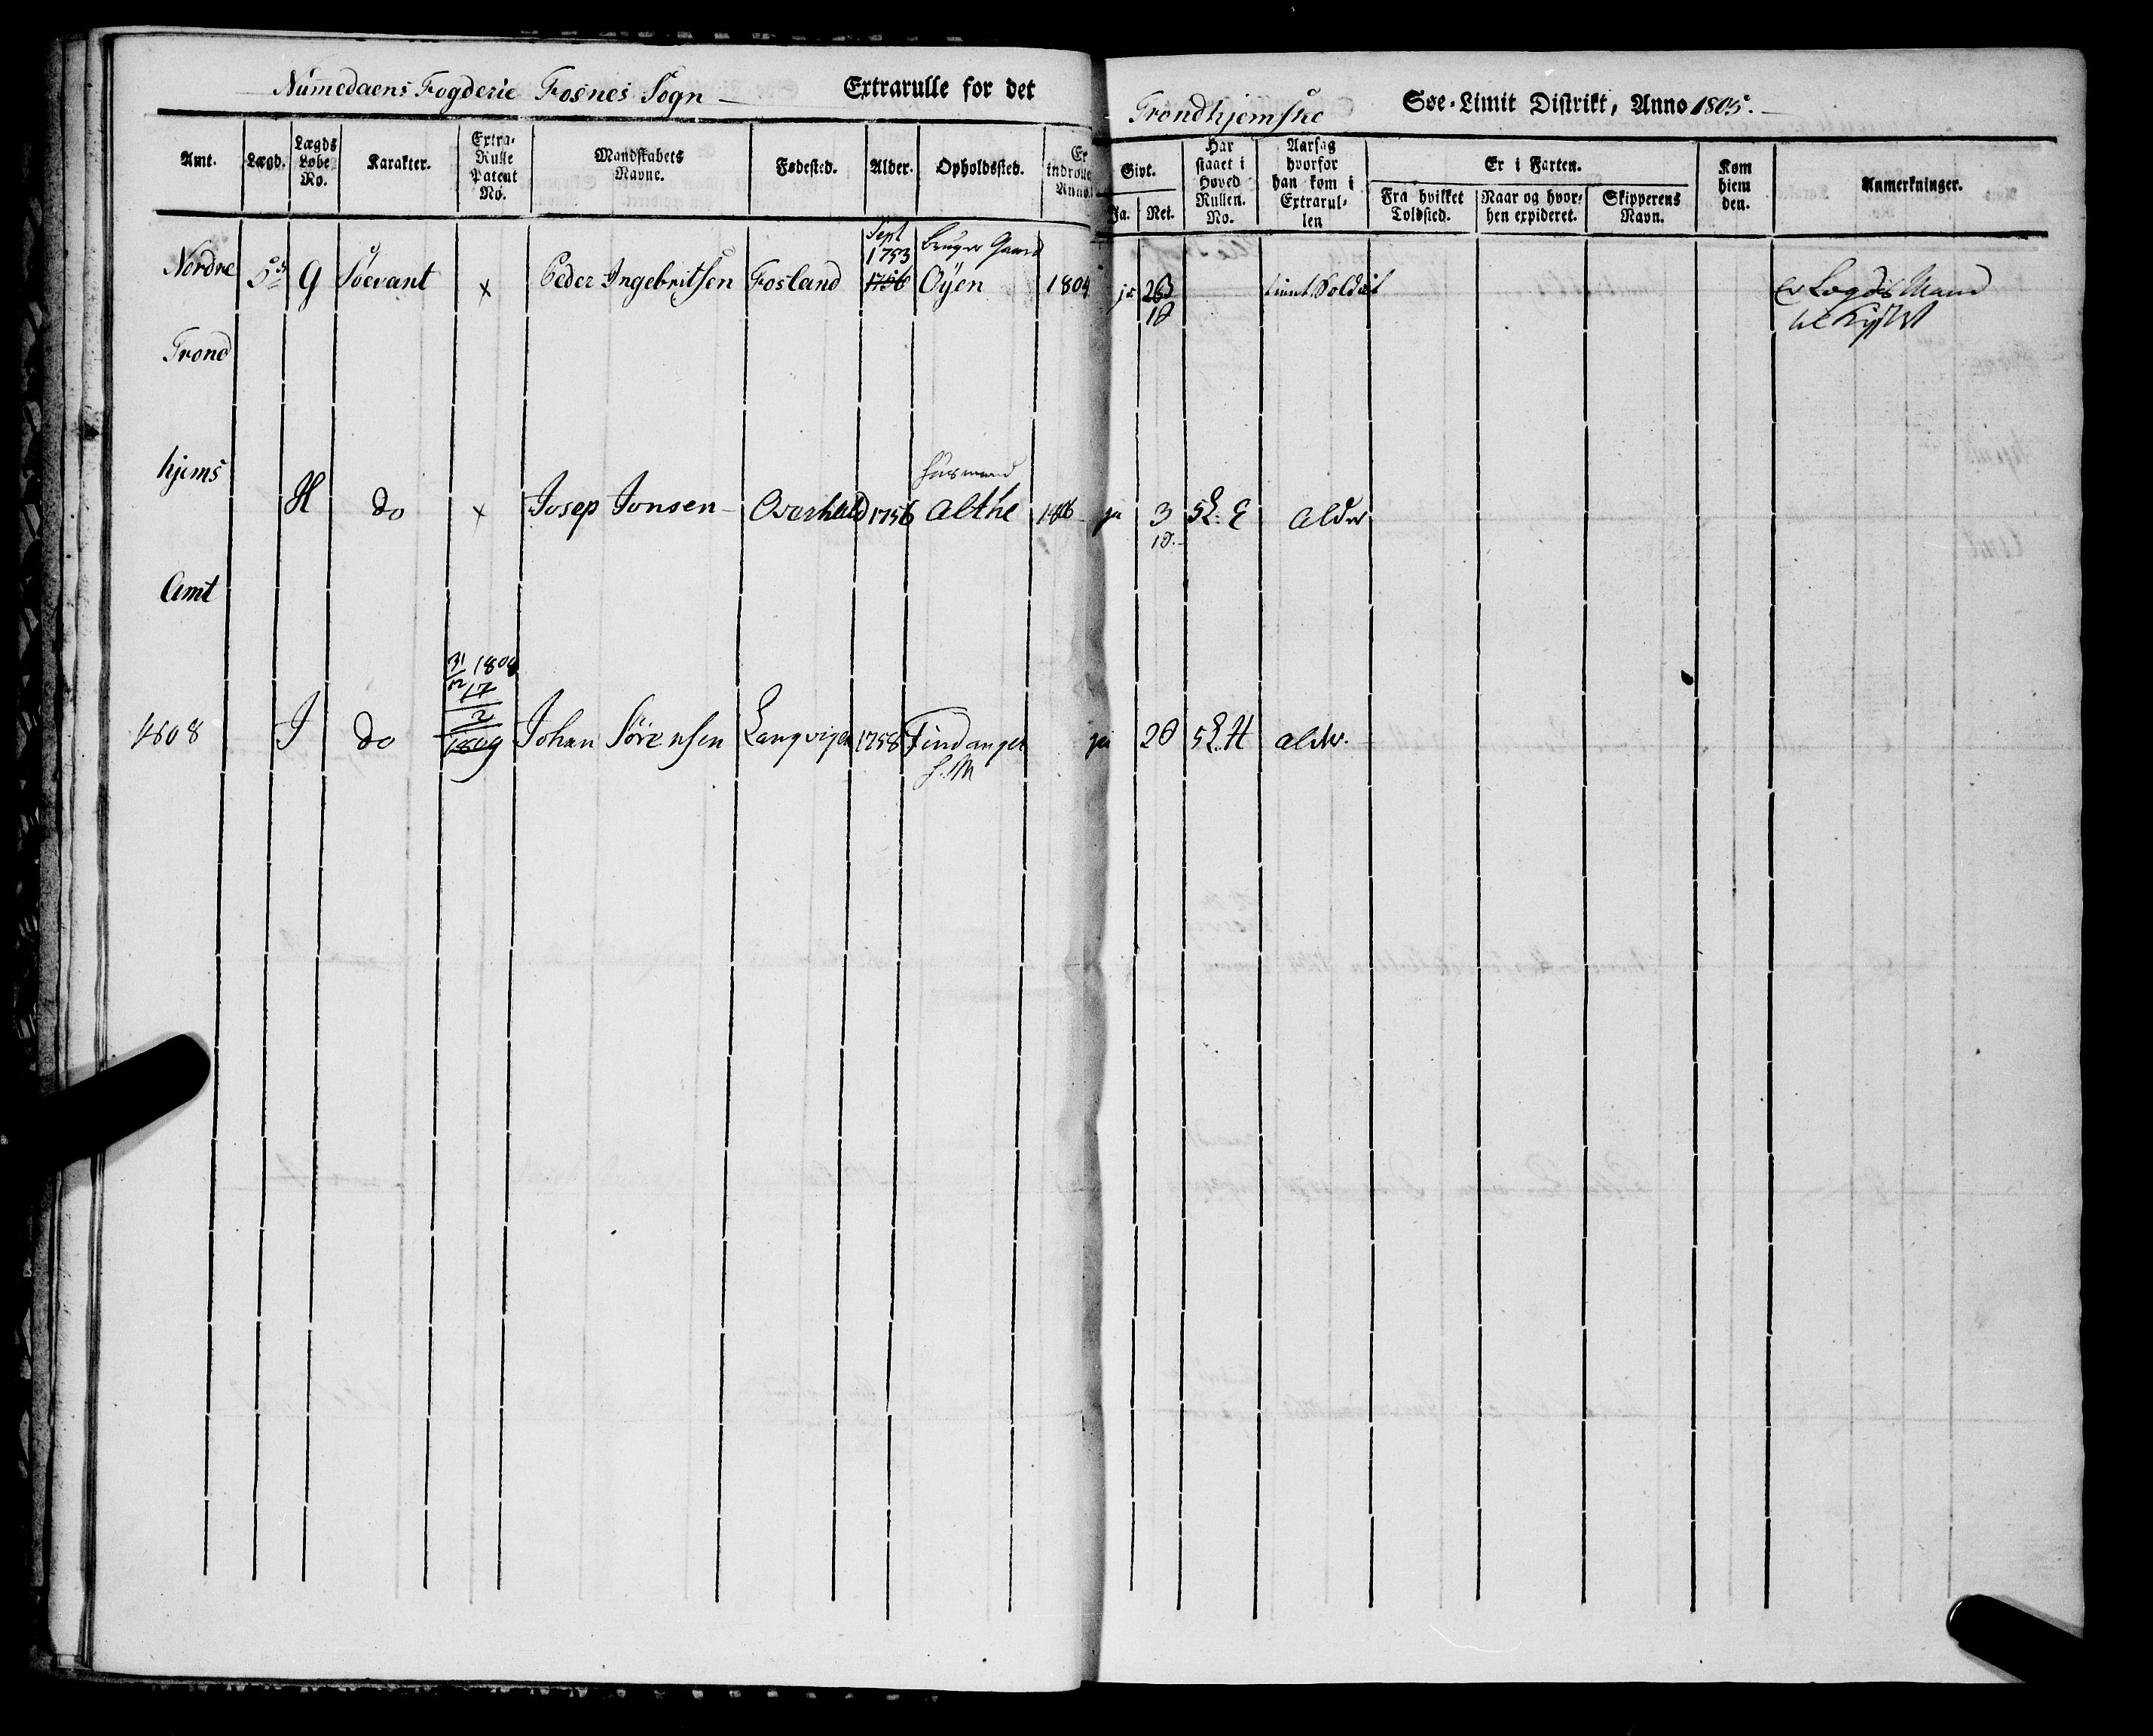 Numedaens Fogderie Fosnes Sogn — Extrarulle for det Trondhjemske Søe-Limit Distrikt, Anno 1805. —
Amt. Lægd. Lægds Løbe No. Karakter. Extra-Rulle Patent No. Mandskabets Navne. Fødested. Alder. Opholdssted. Er indrolle Anno. Givt. Ja. Nei. Har staaet i Hoved Rullen. No. Aarsag hvorfor han kom i Extrarullen Er i Farten. Fra hvilket Toldsted. Naar og hvorhen expideret. Skipperens Navn. Kom hiem den. Anmerkninger.
Sept 1753 bruger Gaard
Nordre 5te G Söevant x Peder Ingebritsen Fosland 1756 Öyen 1804 ja 2 Limit Soldat Er Lægds Mand
Trond
hjems
Huusmand
H do x Josep Jonsen — Overhald 1756 Althe 1806 ja 3 5 L. E Alder
Amt
31/12 1808
17
2
4608 J do 1809 Johan Sörensen Langvigen 1758 Findanger ja 5 L. H alder.
H. M